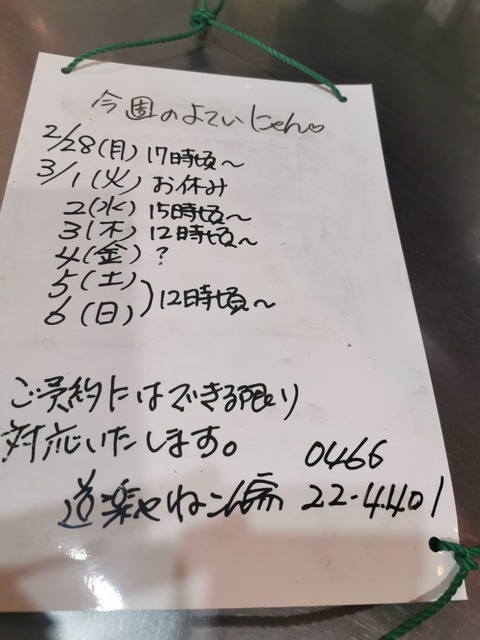 今週のよていにゃん。
2/28(月) 17時頃～
3/1(火) お休み
2(水) 15時頃～
3(木) 12時頃～
4(金) ?
5(土)
6(日) 12時頃～
ご予約にはできる限り
対応いたします。
0466
道楽やねこ 22-4401